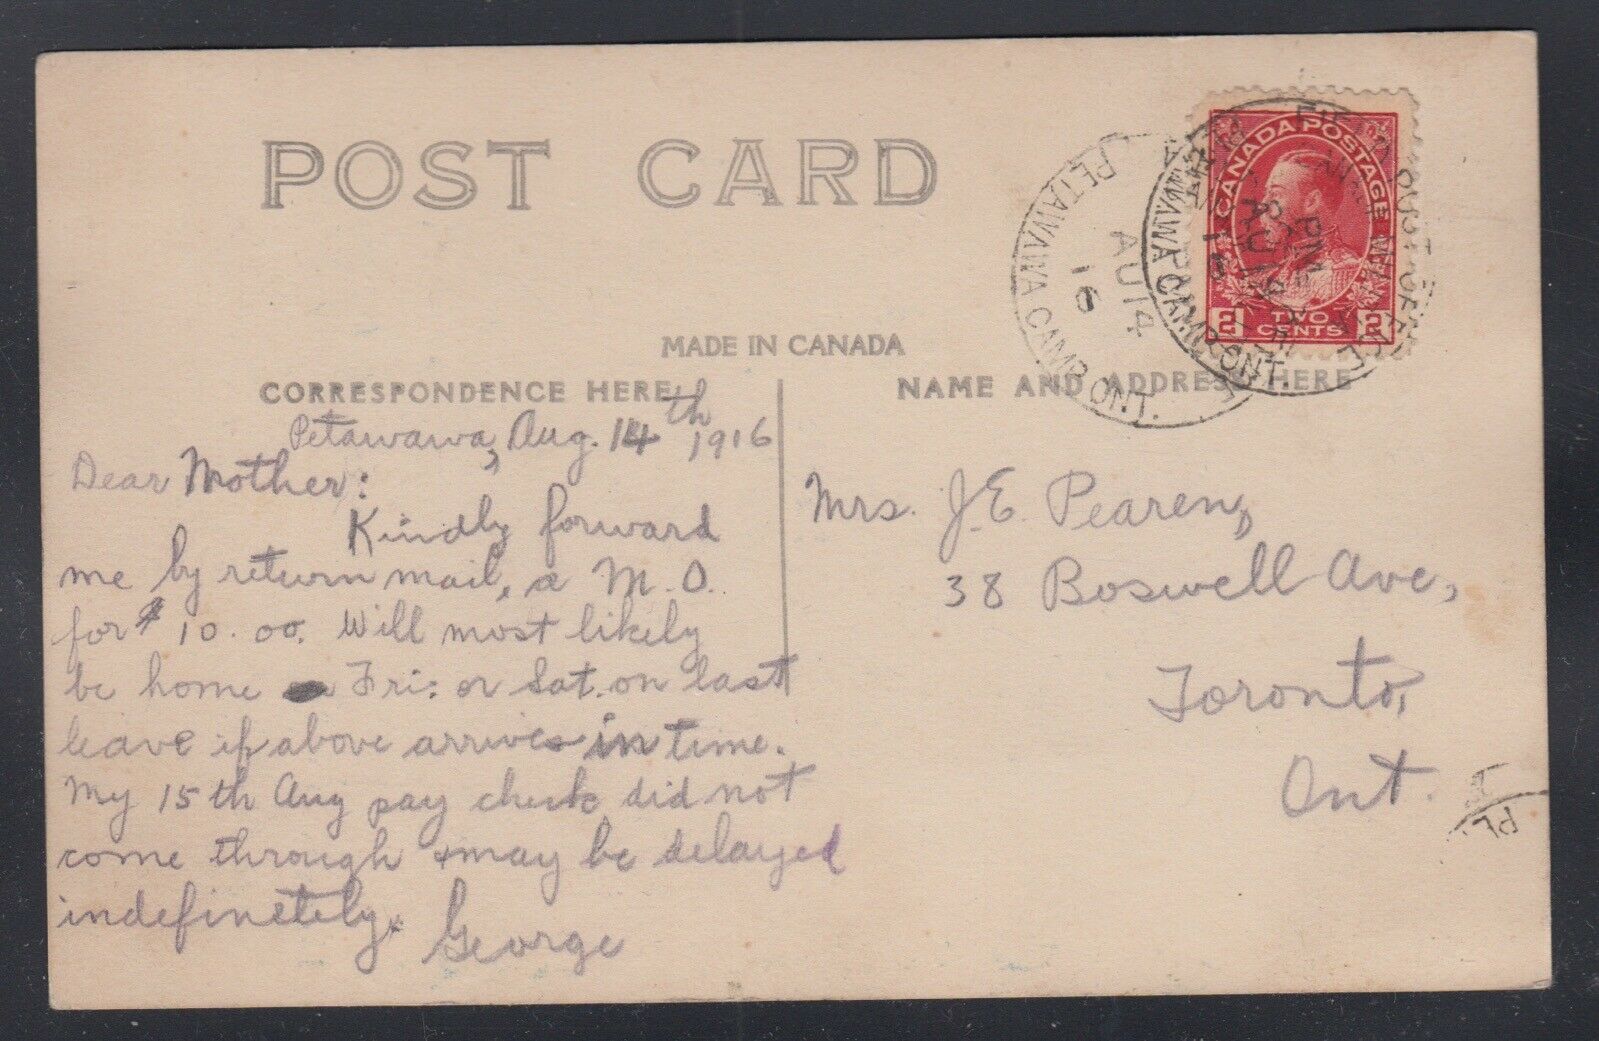 POST CARD
MADE IN CANADA
CORRESPONDENCE HERE
NAME AND ADDRESS HERE
CANADA POSTAGE
2 TWO CENTS 2
PETAWAWA CAMP ONT.
AU 14
16
FIELD POST OFFICE
PM
AU 14
16
PETAWAWA CAMP ONT.
Petawawa, Aug. 14th 1916
Dear Mother:
Kindly forward
me by return mail, a M.O.
for $10.00. Will most likely
be home Fri: or Sat. on last
leave if above arrives in time.
My 15th Aug pay check did not
come through + may be delayed
indefinetely.
George
Mrs. J.E. Pearen,
38 Boswell Ave,
Toronto,
Ont.